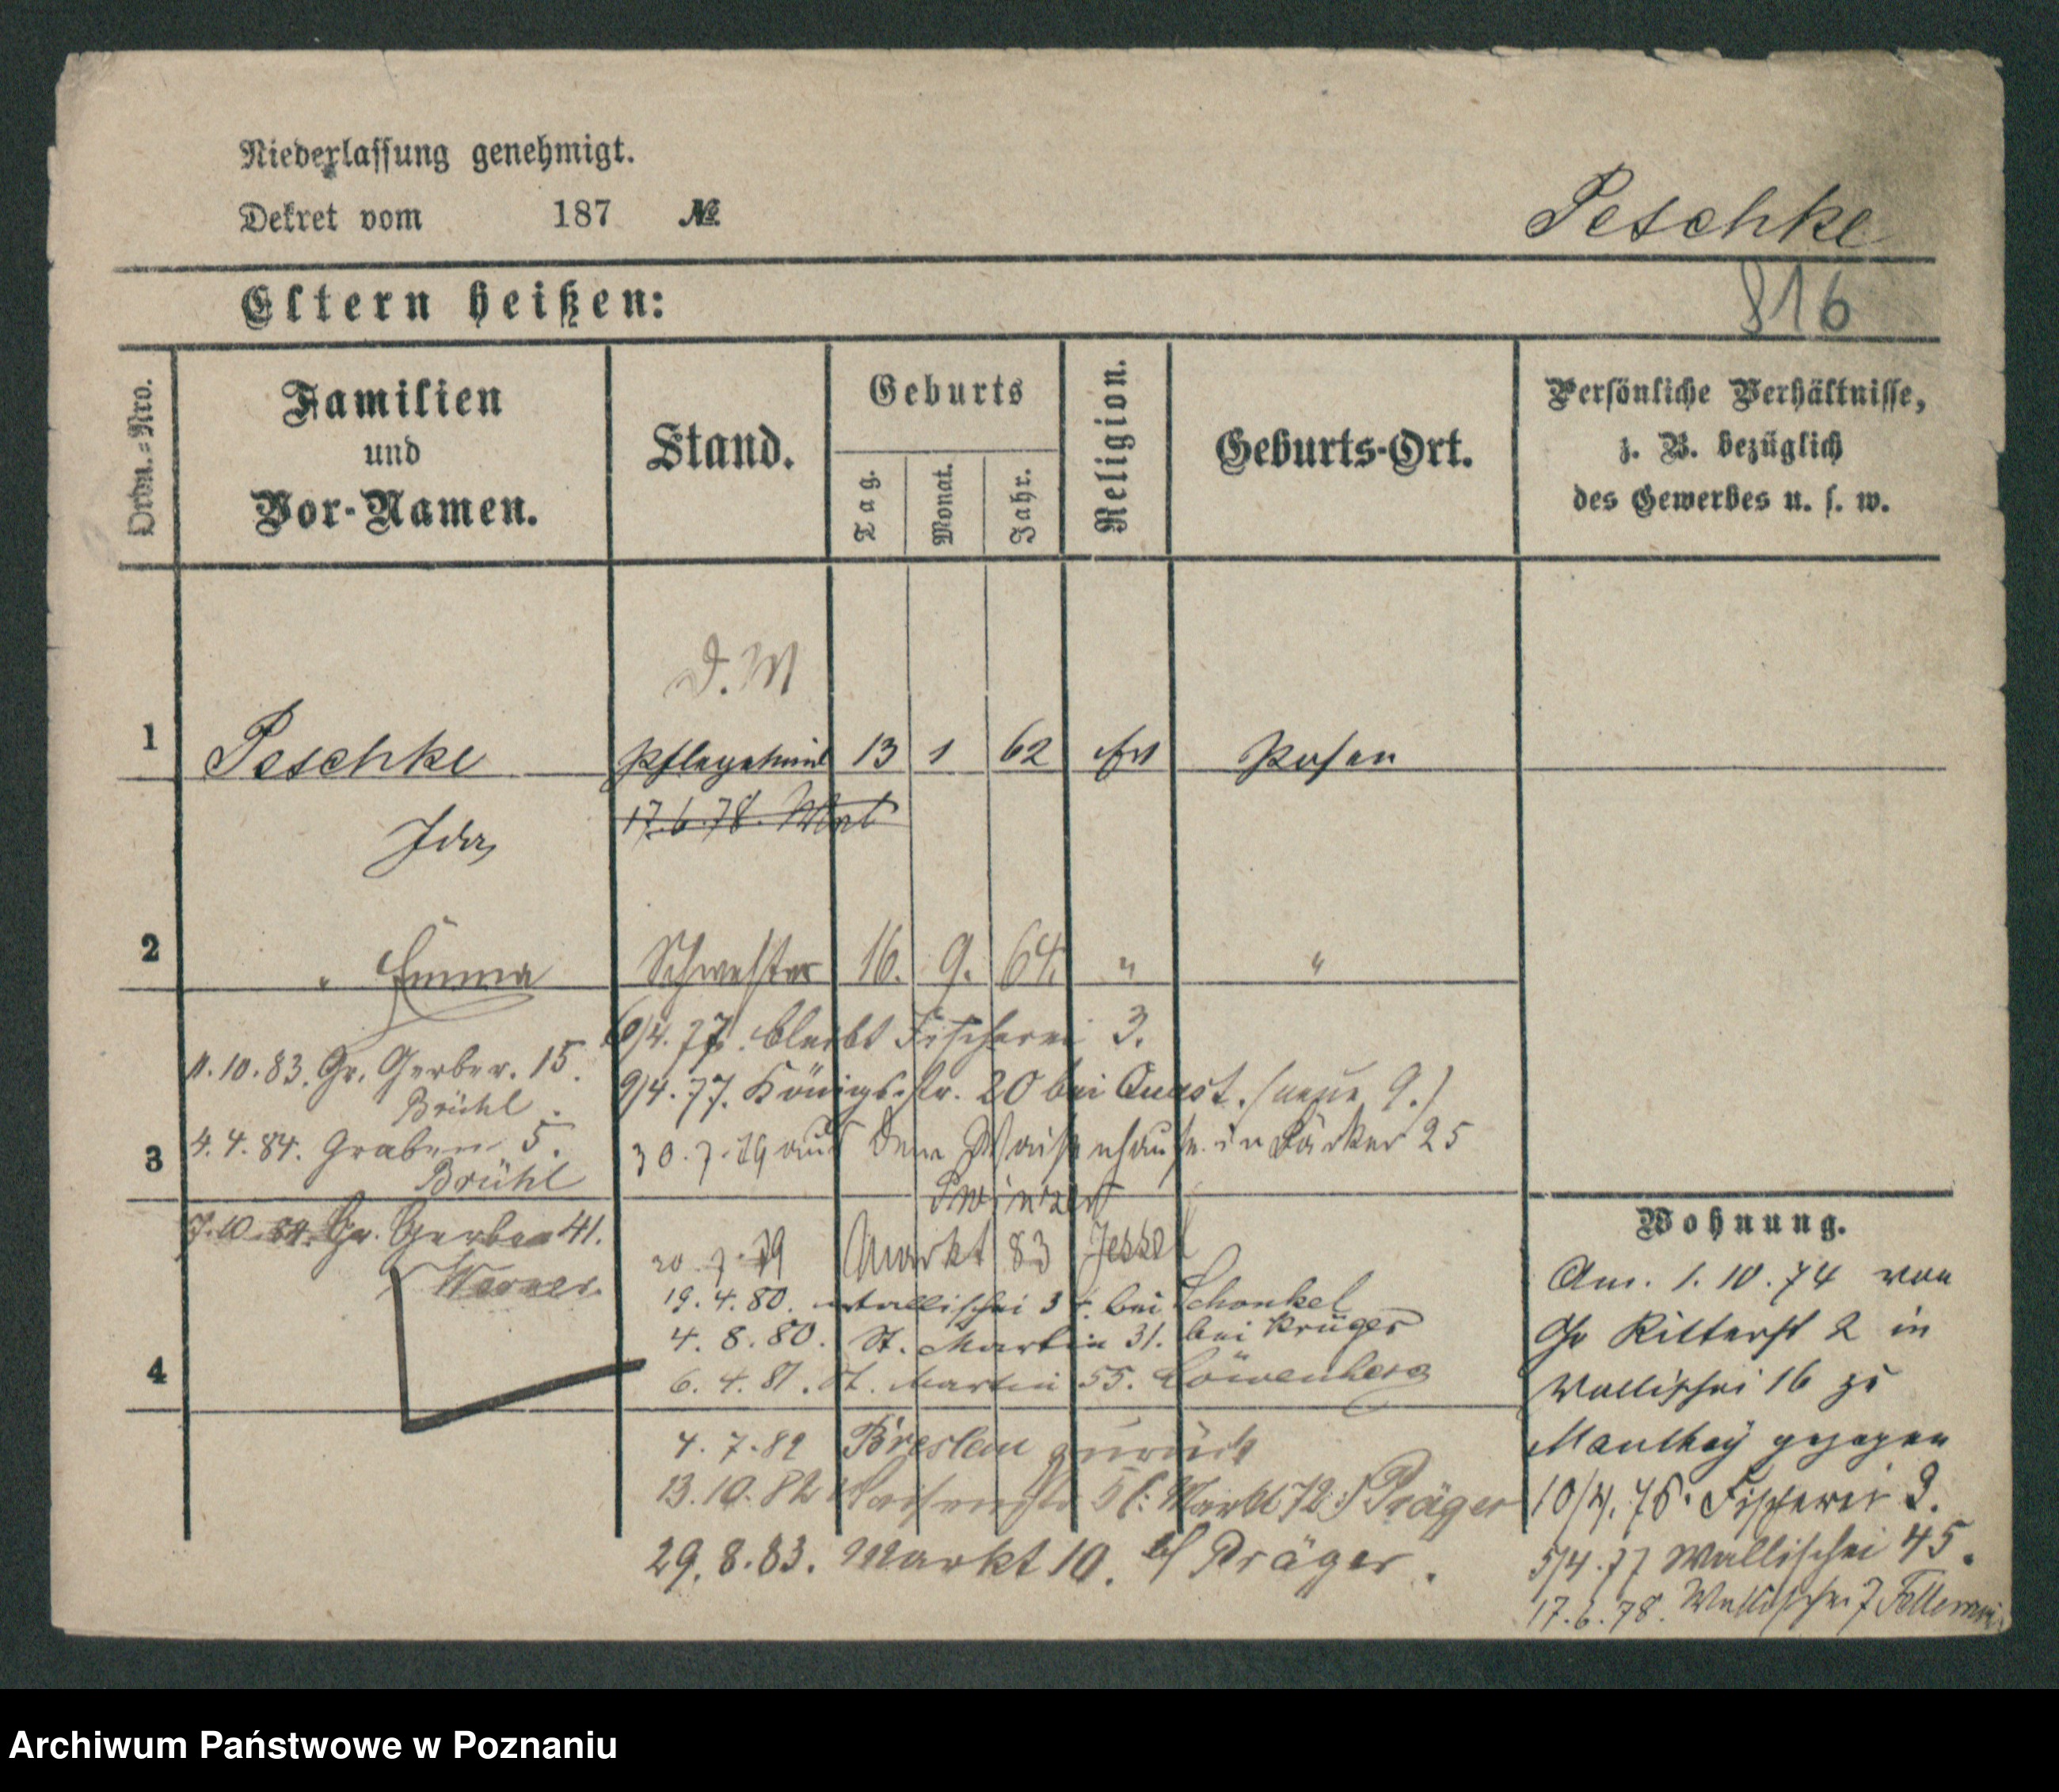 Niederlassung genehmigt.
Dekret vom 187 №
Peschke
816
Eltern heißen:
Ordn.-Nro.
Familien
und
Vor-Namen.
Stand.
Geburts
Tag.
Monat.
Jahr.
Religion.
Geburts-Ort.
Persönliche Verhältnisse,
z. B. bezüglich
des Gewerbes u. s. w.
D. M
1 Peschke Pflegekind 13 1 62 Posen
17.6.78.
Ida
2 " Emma Schwester 16. 9. 64. " "
/4.77. bleibt Fischerei 3.
11.10.83. Gr. Gerber. 15.
Brühl
9/4.77. Königsstr. 20 bei Quast. (neue 9.)
4.4.84. Graben 5.
Brühl
3
30.7.79 aus dem Waisenhause in Bäcker 25
7.10.84. Gr. Gerber 41.
Werner
20.7.79 Markt 83
19.4.80. Wallischei bei Schenkel
4.8.80. St. Martin 31. bei Krüger
4
6.4.81. St. Martin 55. Löwenberg
4.7.82 Breslau zurück
13.10.82 Markt 72 Präger
29.8.83. Markt 10. b/ Präger.
Wohnung.
Am. 1.10.74 von
Gr Ritterst 2 in
Wallischei 16 zu
Manthey gezogen
10/4.76. Fischerei 3.
5/4.77 Wallischei 45.
17.6.78. Wallischei 7
Archiwum Państwowe w Poznaniu